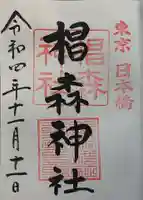 東京 日本橋
椙森神社
令和四年十一月十一日
椙森
神社